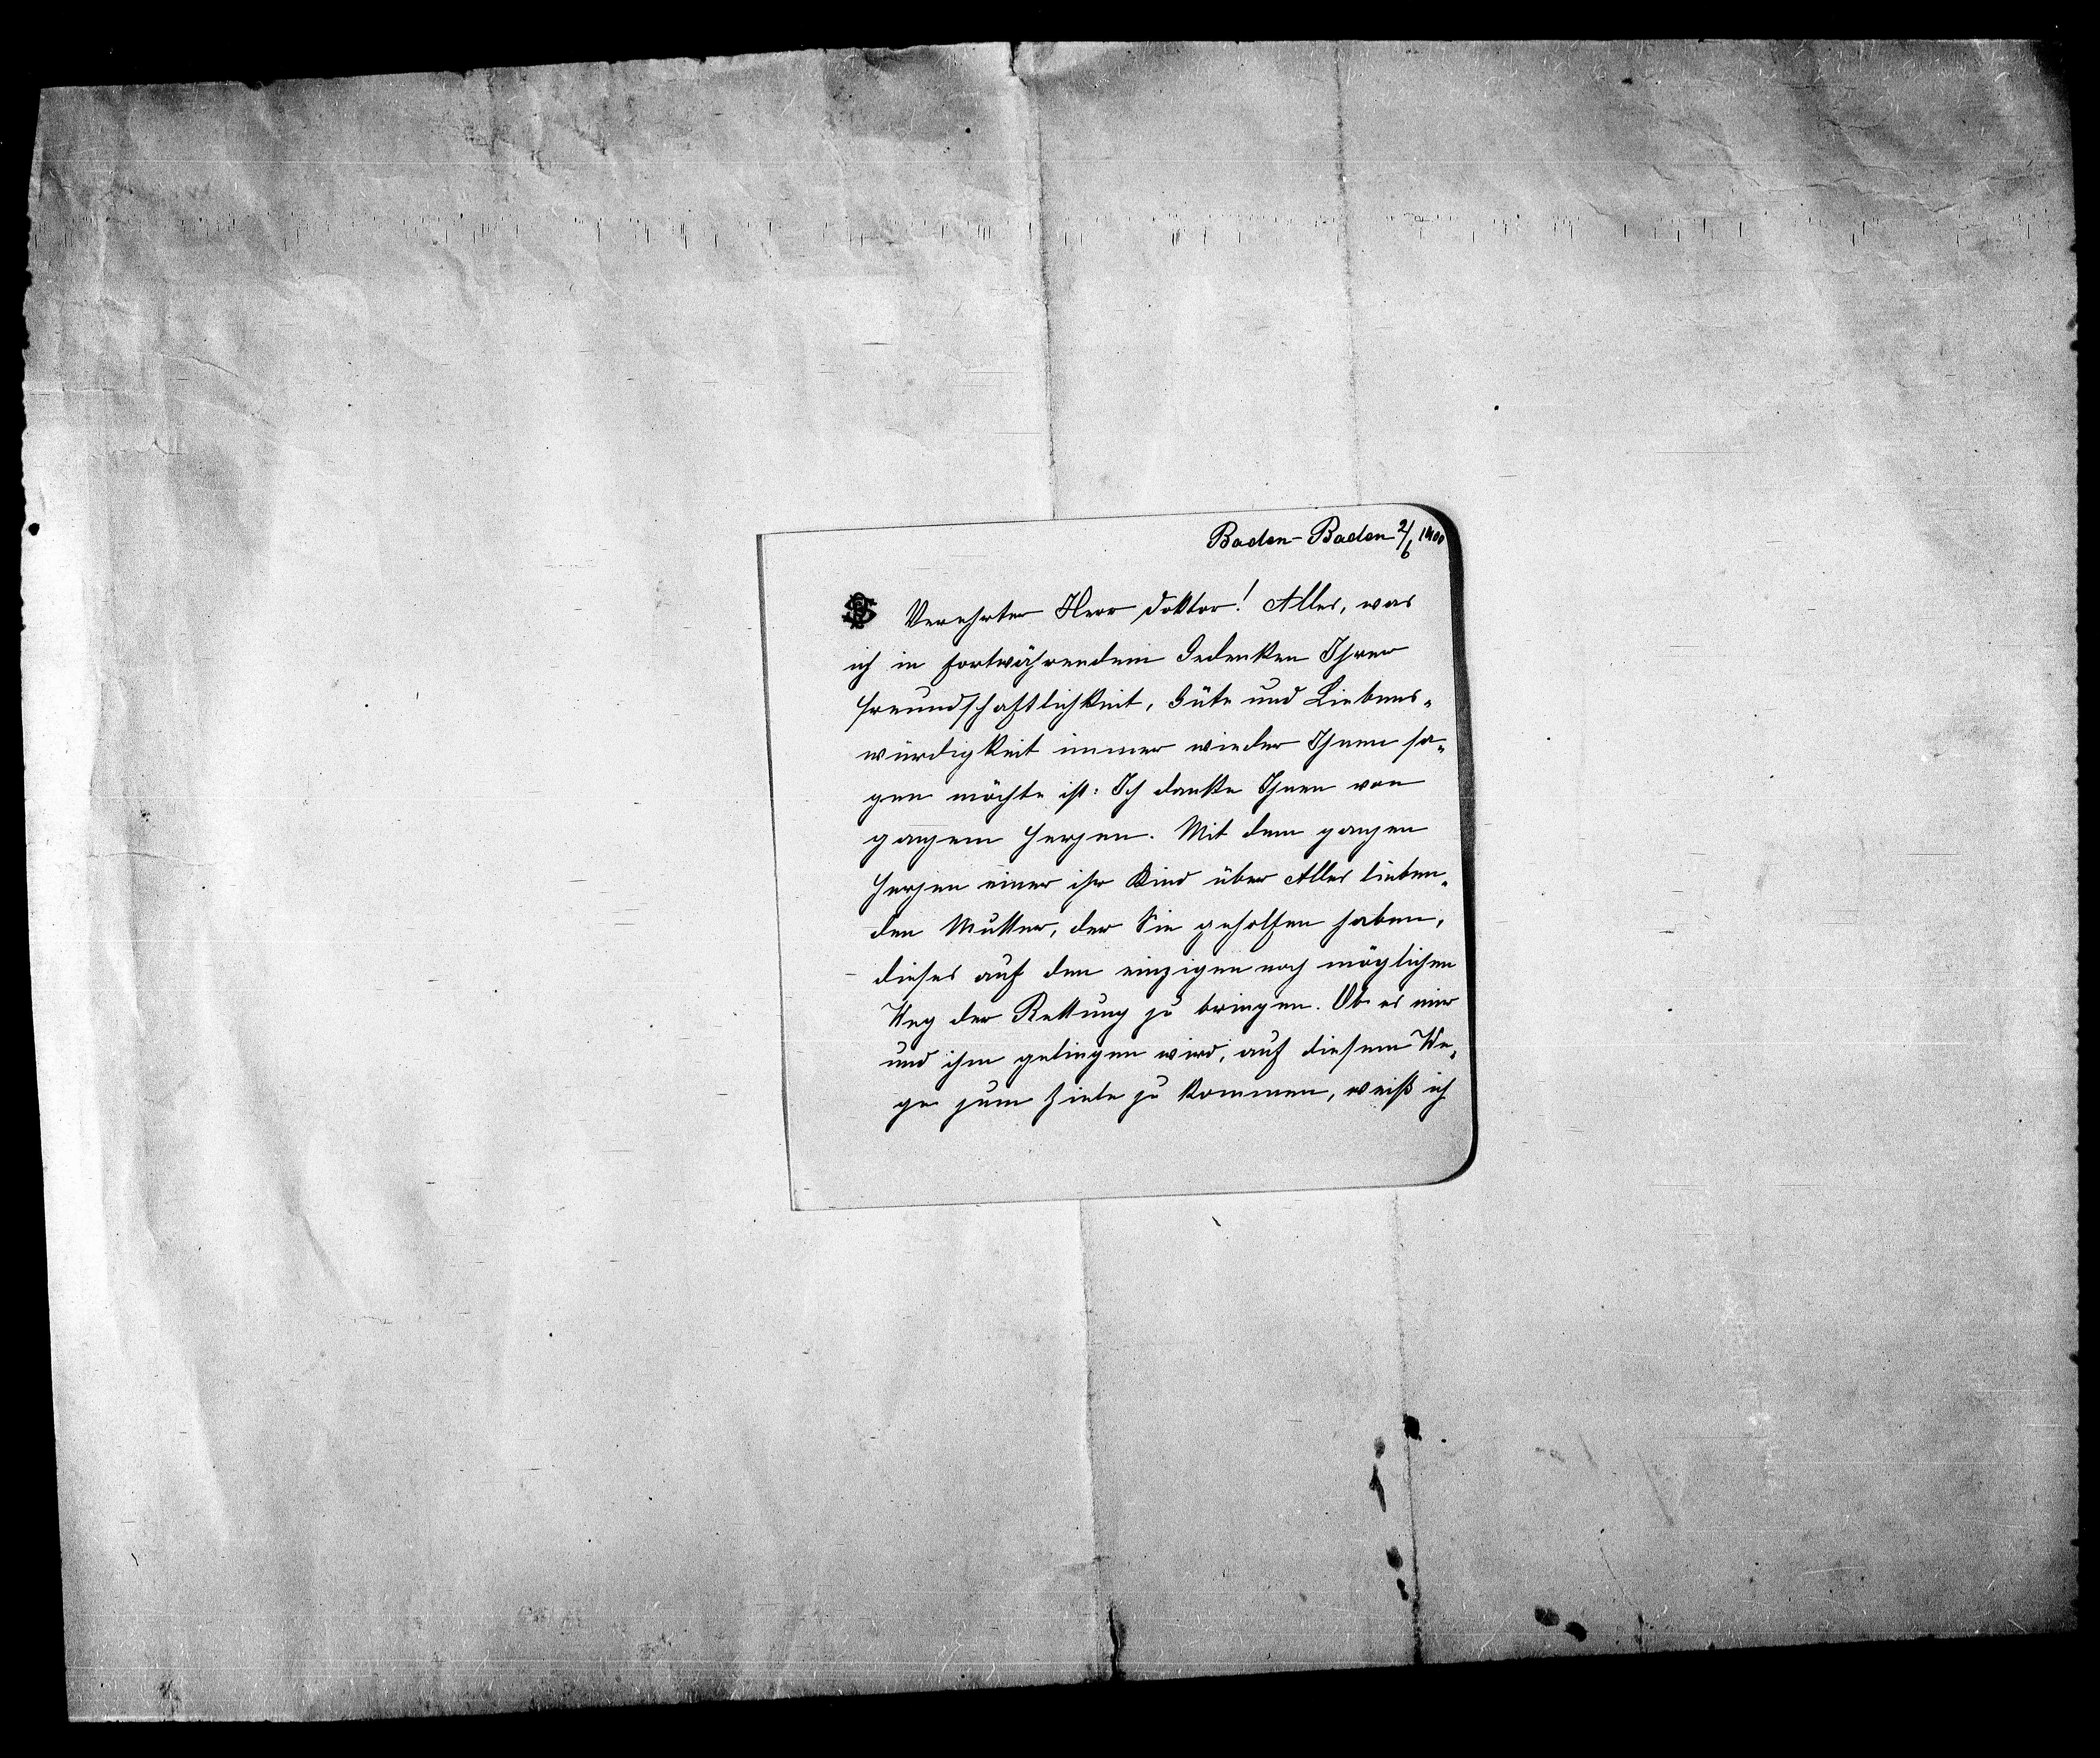 Baden-Baden 2/6 1900
Verehrter Herr Doktor! Alles, was
ich in fortwährendem Gedenken Ihrer
Freundschaftlichkeit, Güte und Liebens-
würdigkeit immer wieder Ihnen sa-
gen möchte ist: Ich danke Ihnen von
ganzem Herzen. Mit dem ganzen
Herzen einer ihr Kind über Alles lieben-
den Mutter, der Sie geholfen haben,
dieses auf den einzigen noch möglichen
Weg der Rettung zu bringen. Ob es mir
und ihm gelingen wird, auf diesem We-
ge zum Ziele zu kommen, weiß ich